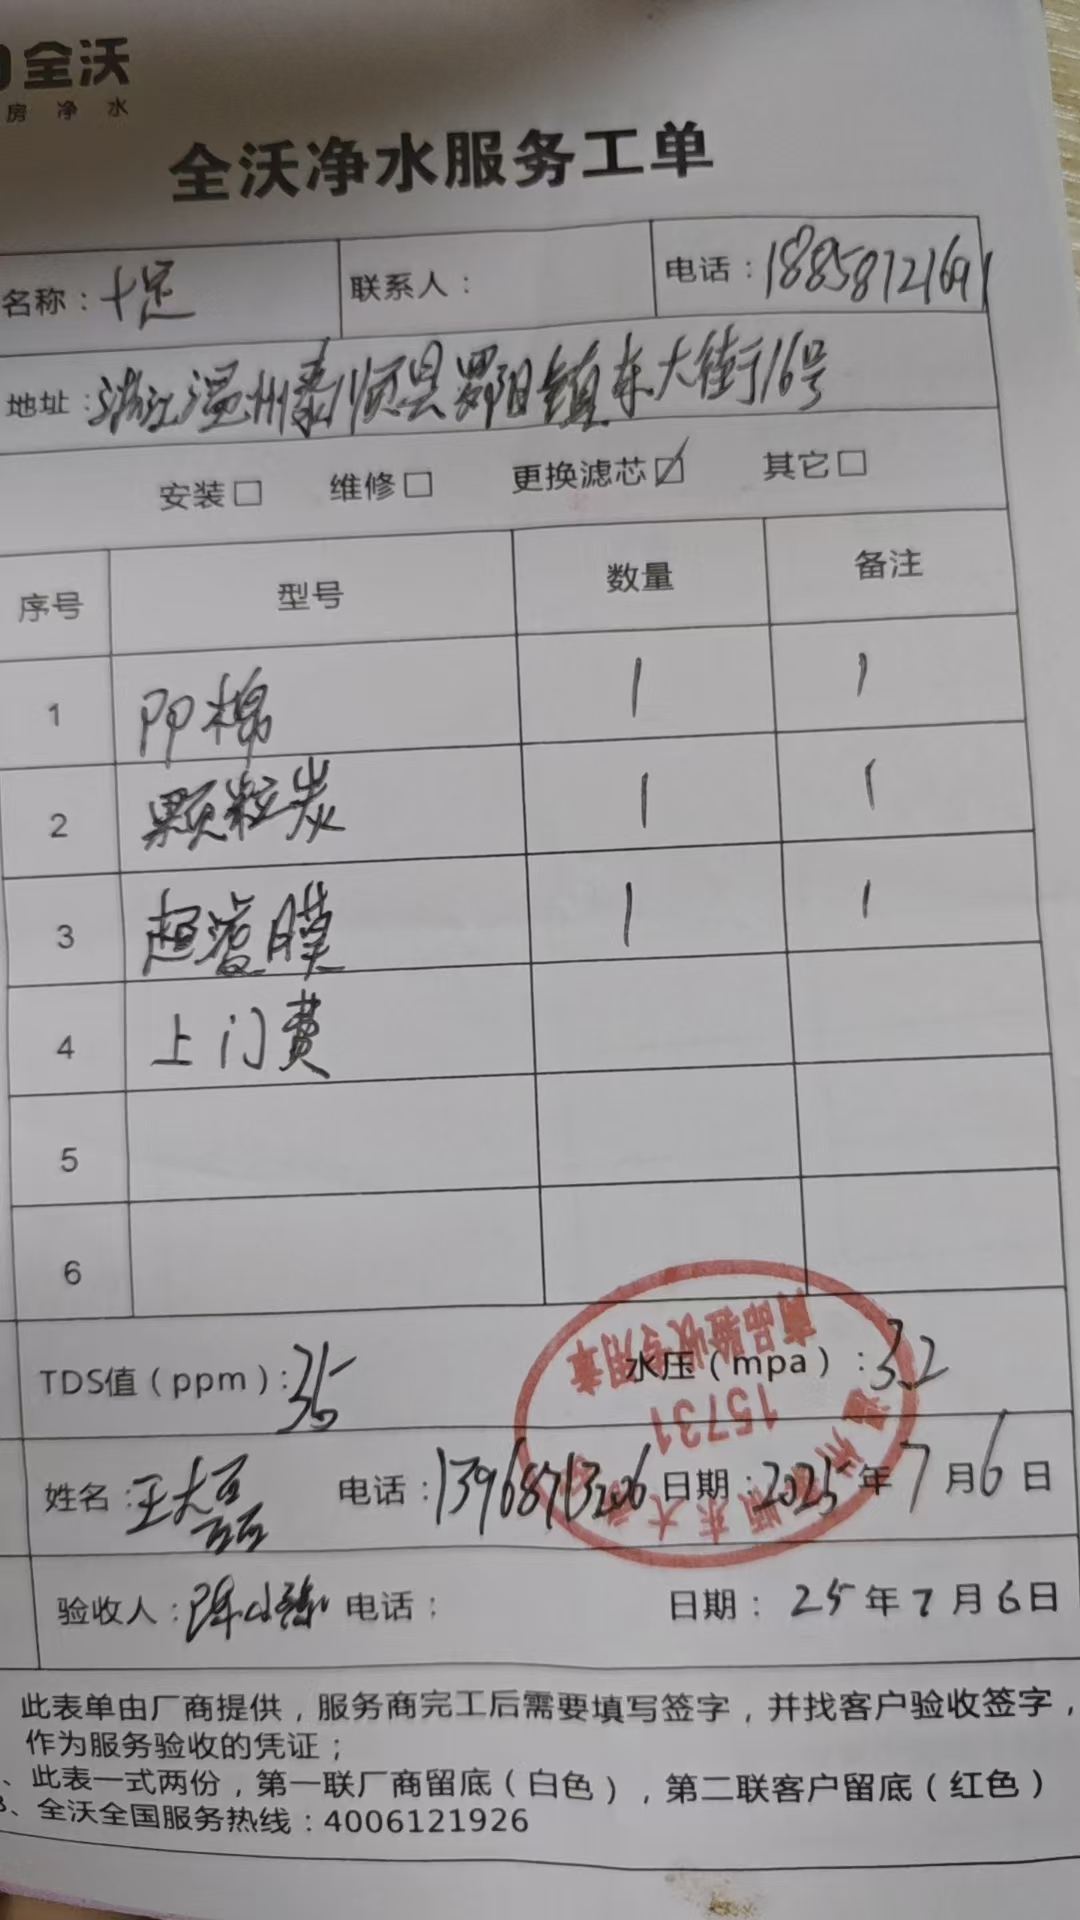 全沃
房净水
全沃净水服务工单
名称：十足 联系人： 电话：18858721691
地址：浙江温州泰顺县罗阳镇东大街116号
安装□ 维修□ 更换滤芯☑ 其它□
序号 型号 数量 备注
1 PP棉 1 1
2 颗粒炭 1 1
3 超滤膜 1 1
4 上门费
5
6
TDS值（ppm）：35 水压（mpa）：3.2
商品验收专用章
15731
姓名：王大磊 电话：13968713206 日期：2025年7月6日
验收人： 电话： 日期：25年7月6日
此表单由厂商提供，服务商完工后需要填写签字，并找客户验收签字，
作为服务验收的凭证；
、此表一式两份，第一联厂商留底（白色），第二联客户留底（红色）
3、全沃全国服务热线：4006121926